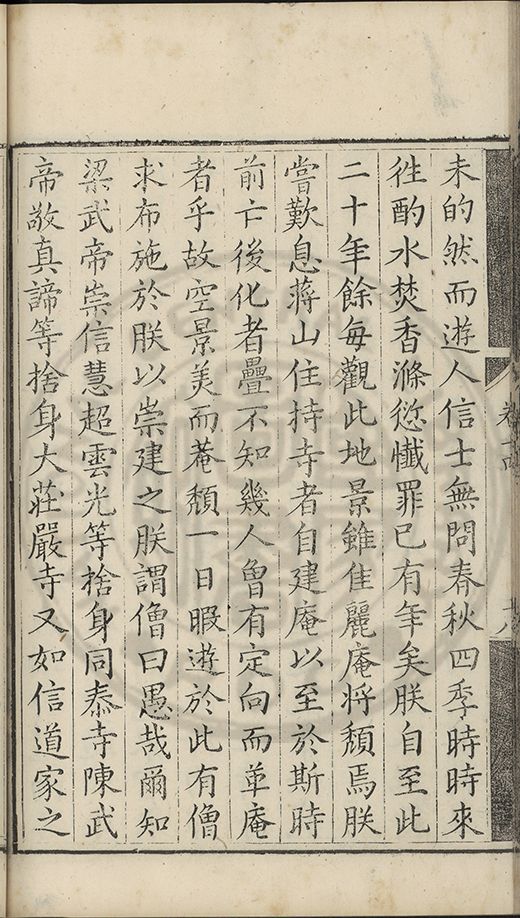 未的然而遊人信士無問春秋四季時時來
徃酌水焚香滌愆懺罪已有年矣朕自至此
二十年餘每觀此地景雖佳麗庵將頽焉朕
嘗歎息蔣山住持寺者自建庵以至於斯時
前亡後化者疊不知幾人曾有定向而革庵
者乎故空景美而菴頽一日暇遊於此有僧
求布施於朕以崇建之朕謂僧曰愚哉爾知
梁武帝崇信慧超雲光等捨身同泰寺陳武
帝敬真諦等捨身大莊嚴寺又如信道家之
卷十四
十八